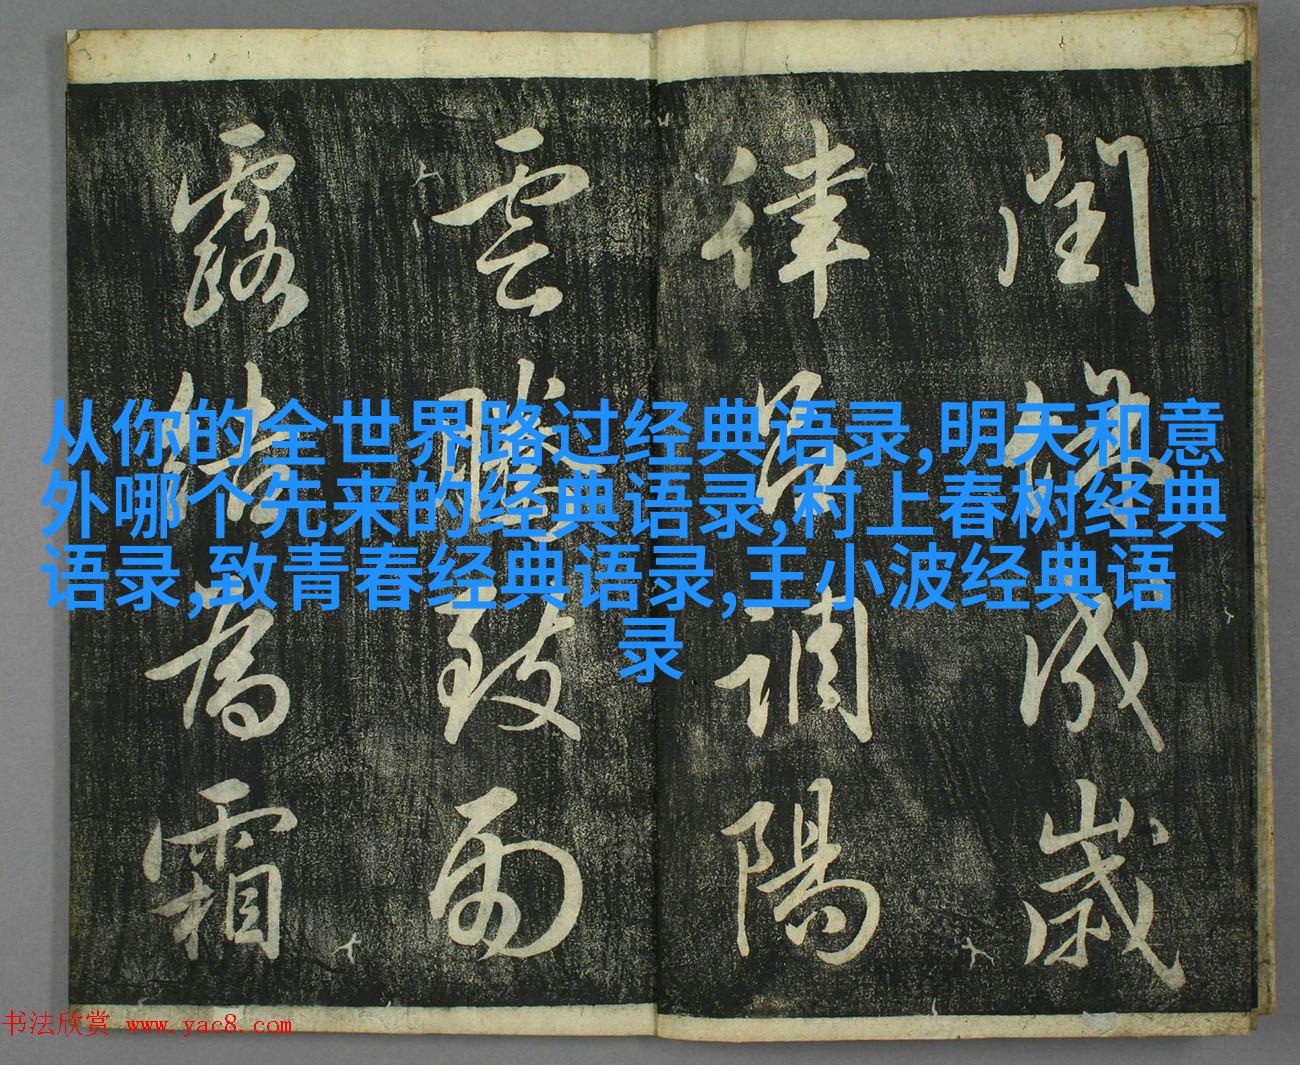 閏餘成歲
律呂調陽
雲騰致雨
露結為霜
从你的全世界路过经典语录,明天和意
外哪个先来的经典语录,村上春树经典
语录,致青春经典语录,王小波经典语
录
书法欣赏 www.yac8.com